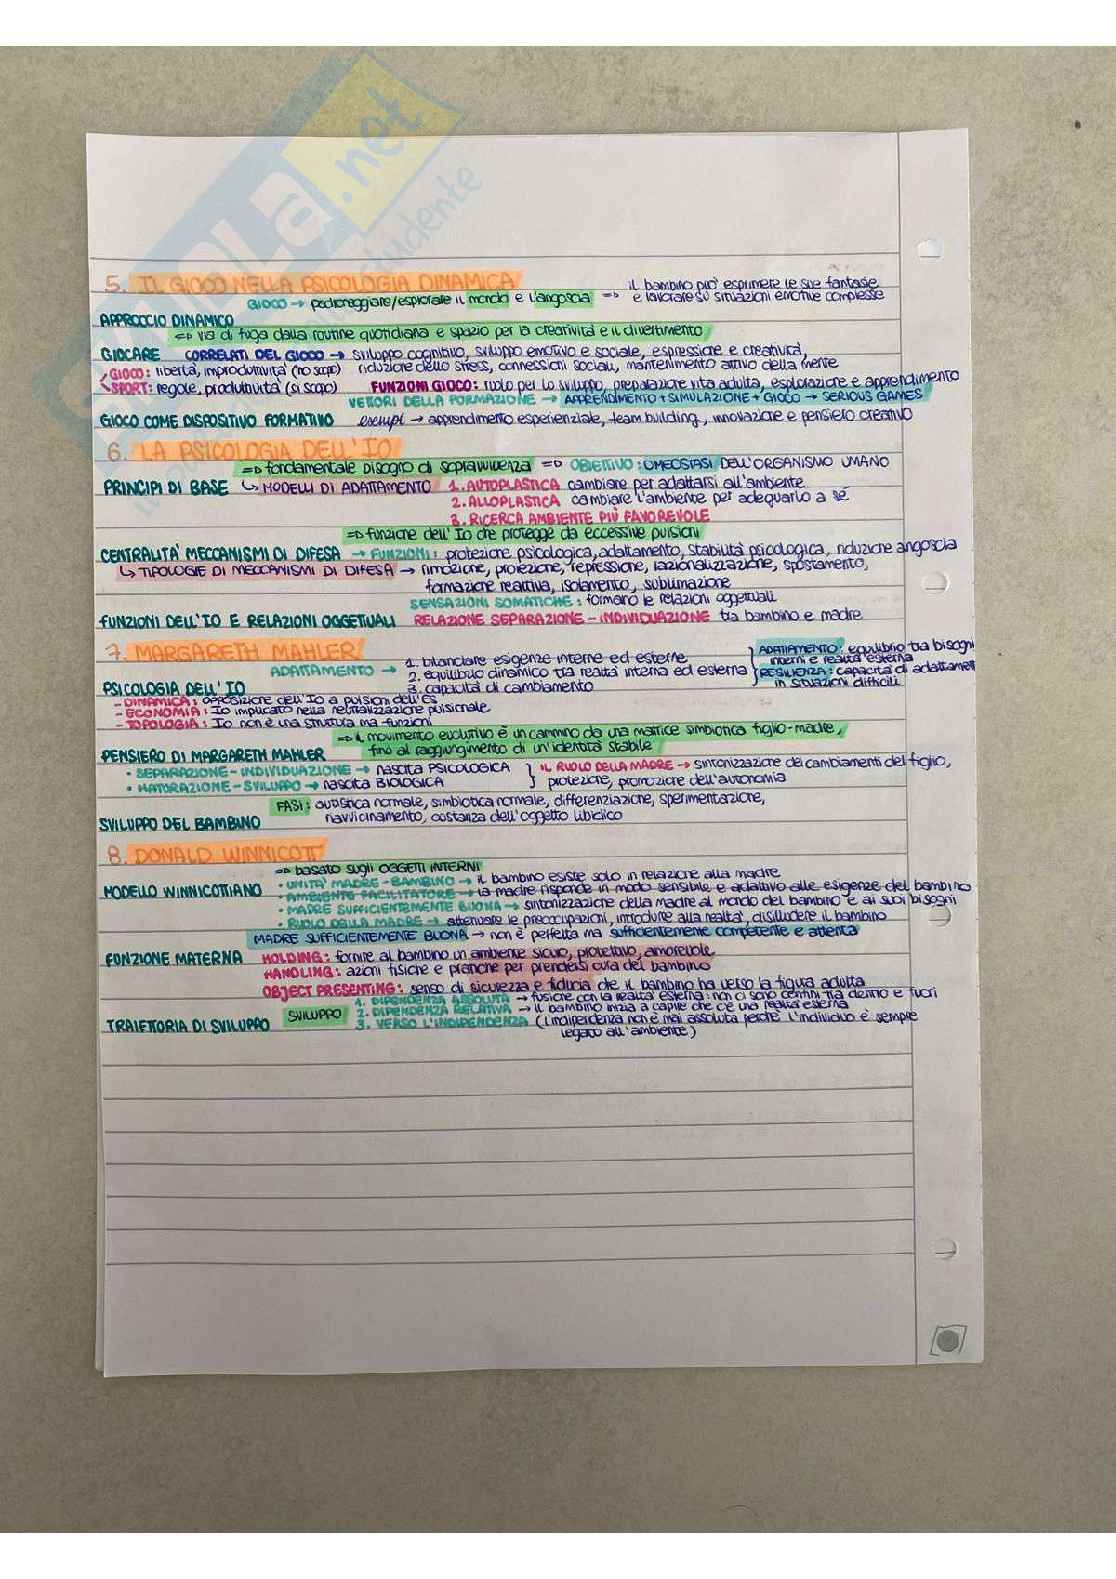 5. IL GIOCO NELLA PSICOLOGIA DINAMICA
il bambino può esprimere le sue fantasie
GIOCO → padroneggiare/esplorare il mondo e l'angoscia => e lavorare su situazioni emotive complesse
APPROCCIO DINAMICO
=> via di fuga dalla routine quotidiana e spazio per la creatività e il divertimento
GIOCARE CORRELATI DEL GIOCO → sviluppo cognitivo, sviluppo emotivo e sociale, espressione e creatività,
GIOCO: libertà, improduttività (no scopo) riduzione dello stress, connessioni sociali, mantenimento attivo della mente
SPORT: regole, produttività (sì scopo) FUNZIONI GIOCO: ruolo per lo sviluppo, preparazione vita adulta, esplorazione e apprendimento
VETTORI DELLA FORMAZIONE → APPRENDIMENTO + SIMULAZIONE + GIOCO → SERIOUS GAMES
GIOCO COME DISPOSITIVO FORMATIVO esempi → apprendimento esperienziale, team building, innovazione e pensiero creativo
6. LA PSICOLOGIA DELL'IO
=> fondamentale bisogno di sopravvivenza => OBIETTIVO: OMEOSTASI DELL'ORGANISMO UMANO
PRINCIPI DI BASE ↳ MODELLI DI ADATTAMENTO 1. AUTOPLASTICA cambiare per adattarsi all'ambiente
2. ALLOPLASTICA cambiare l'ambiente per adeguarlo a sé
3. RICERCA AMBIENTE PIÙ FAVOREVOLE
=> funzione dell'Io che protegge da eccessive pulsioni
CENTRALITA' MECCANISMI DI DIFESA → FUNZIONI: protezione psicologica, adattamento, stabilità psicologica, riduzione angoscia
↳ TIPOLOGIE DI MECCANISMI DI DIFESA → rimozione, proiezione, repressione, razionalizzazione, spostamento,
formazione reattiva, isolamento, sublimazione
SENSAZIONI SOMATICHE: formano le relazioni oggettuali
FUNZIONI DELL'IO E RELAZIONI OGGETTUALI RELAZIONE SEPARAZIONE - INDIVIDUAZIONE tra bambino e madre
7. MARGARETH MAHLER
ADATTAMENTO: equilibrio tra bisogni
interni e realtà esterna
ADATTAMENTO → 1. bilanciare esigenze interne ed esterne
2. equilibrio dinamico tra realtà interna ed esterna
RESILIENZA: capacità di adattamen
in situazioni difficili
3. capacità di cambiamento
PSICOLOGIA DELL'IO
- DINAMICA: opposizione dell'Io a pulsioni dell'Es
- ECONOMIA: Io implicato nella neutralizzazione pulsionale
- TOPOLOGIA: Io non è una struttura ma funzioni
=> il movimento evolutivo è un cammino da una matrice simbiotica figlio-madre,
fino al raggiungimento di un'identità stabile
PENSIERO DI MARGARETH MAHLER
• SEPARAZIONE - INDIVIDUAZIONE → nascita PSICOLOGICA
• MATURAZIONE - SVILUPPO → nascita BIOLOGICA
IL RUOLO DELLA MADRE → sintonizzazione dei cambiamenti del figlio,
protezione, promozione dell'autonomia
FASI: autistica normale, simbiotica normale, differenziazione, sperimentazione,
riavvicinamento, costanza dell'oggetto libidico
SVILUPPO DEL BAMBINO
8. DONALD WINNICOTT
=> basato sugli OGGETTI INTERNI
MODELLO WINNICOTTIANO • UNITA' MADRE-BAMBINO → il bambino esiste solo in relazione alla madre
• AMBIENTE FACILITATORE → la madre risponde in modo sensibile e adattivo alle esigenze del bambino
• MADRE SUFFICIENTEMENTE BUONA → sintonizzazione della madre al mondo del bambino e ai suoi bisogni
• RUOLO DELLA MADRE → attenuare le preoccupazioni, introdurre alla realtà, disilludere il bambino
MADRE SUFFICIENTEMENTE BUONA → non è perfetta ma sufficientemente competente e attenta
FUNZIONE MATERNA HOLDING: fornire al bambino un ambiente sicuro, protettivo, amorevole
HANDLING: azioni fisiche e pratiche per prendersi cura del bambino
OBJECT PRESENTING: senso di sicurezza e fiducia che il bambino ha verso la figura adulta
TRAIETTORIA DI SVILUPPO SVILUPPO 1. DIPENDENZA ASSOLUTA → fusione con la realtà esterna: non ci sono confini tra dentro e fuori
2. DIPENDENZA RELATIVA → il bambino inizia a capire che c'è una realtà esterna
3. VERSO L'INDIPENDENZA (l'indipendenza non è mai assoluta perché l'individuo è sempre
legato all'ambiente)